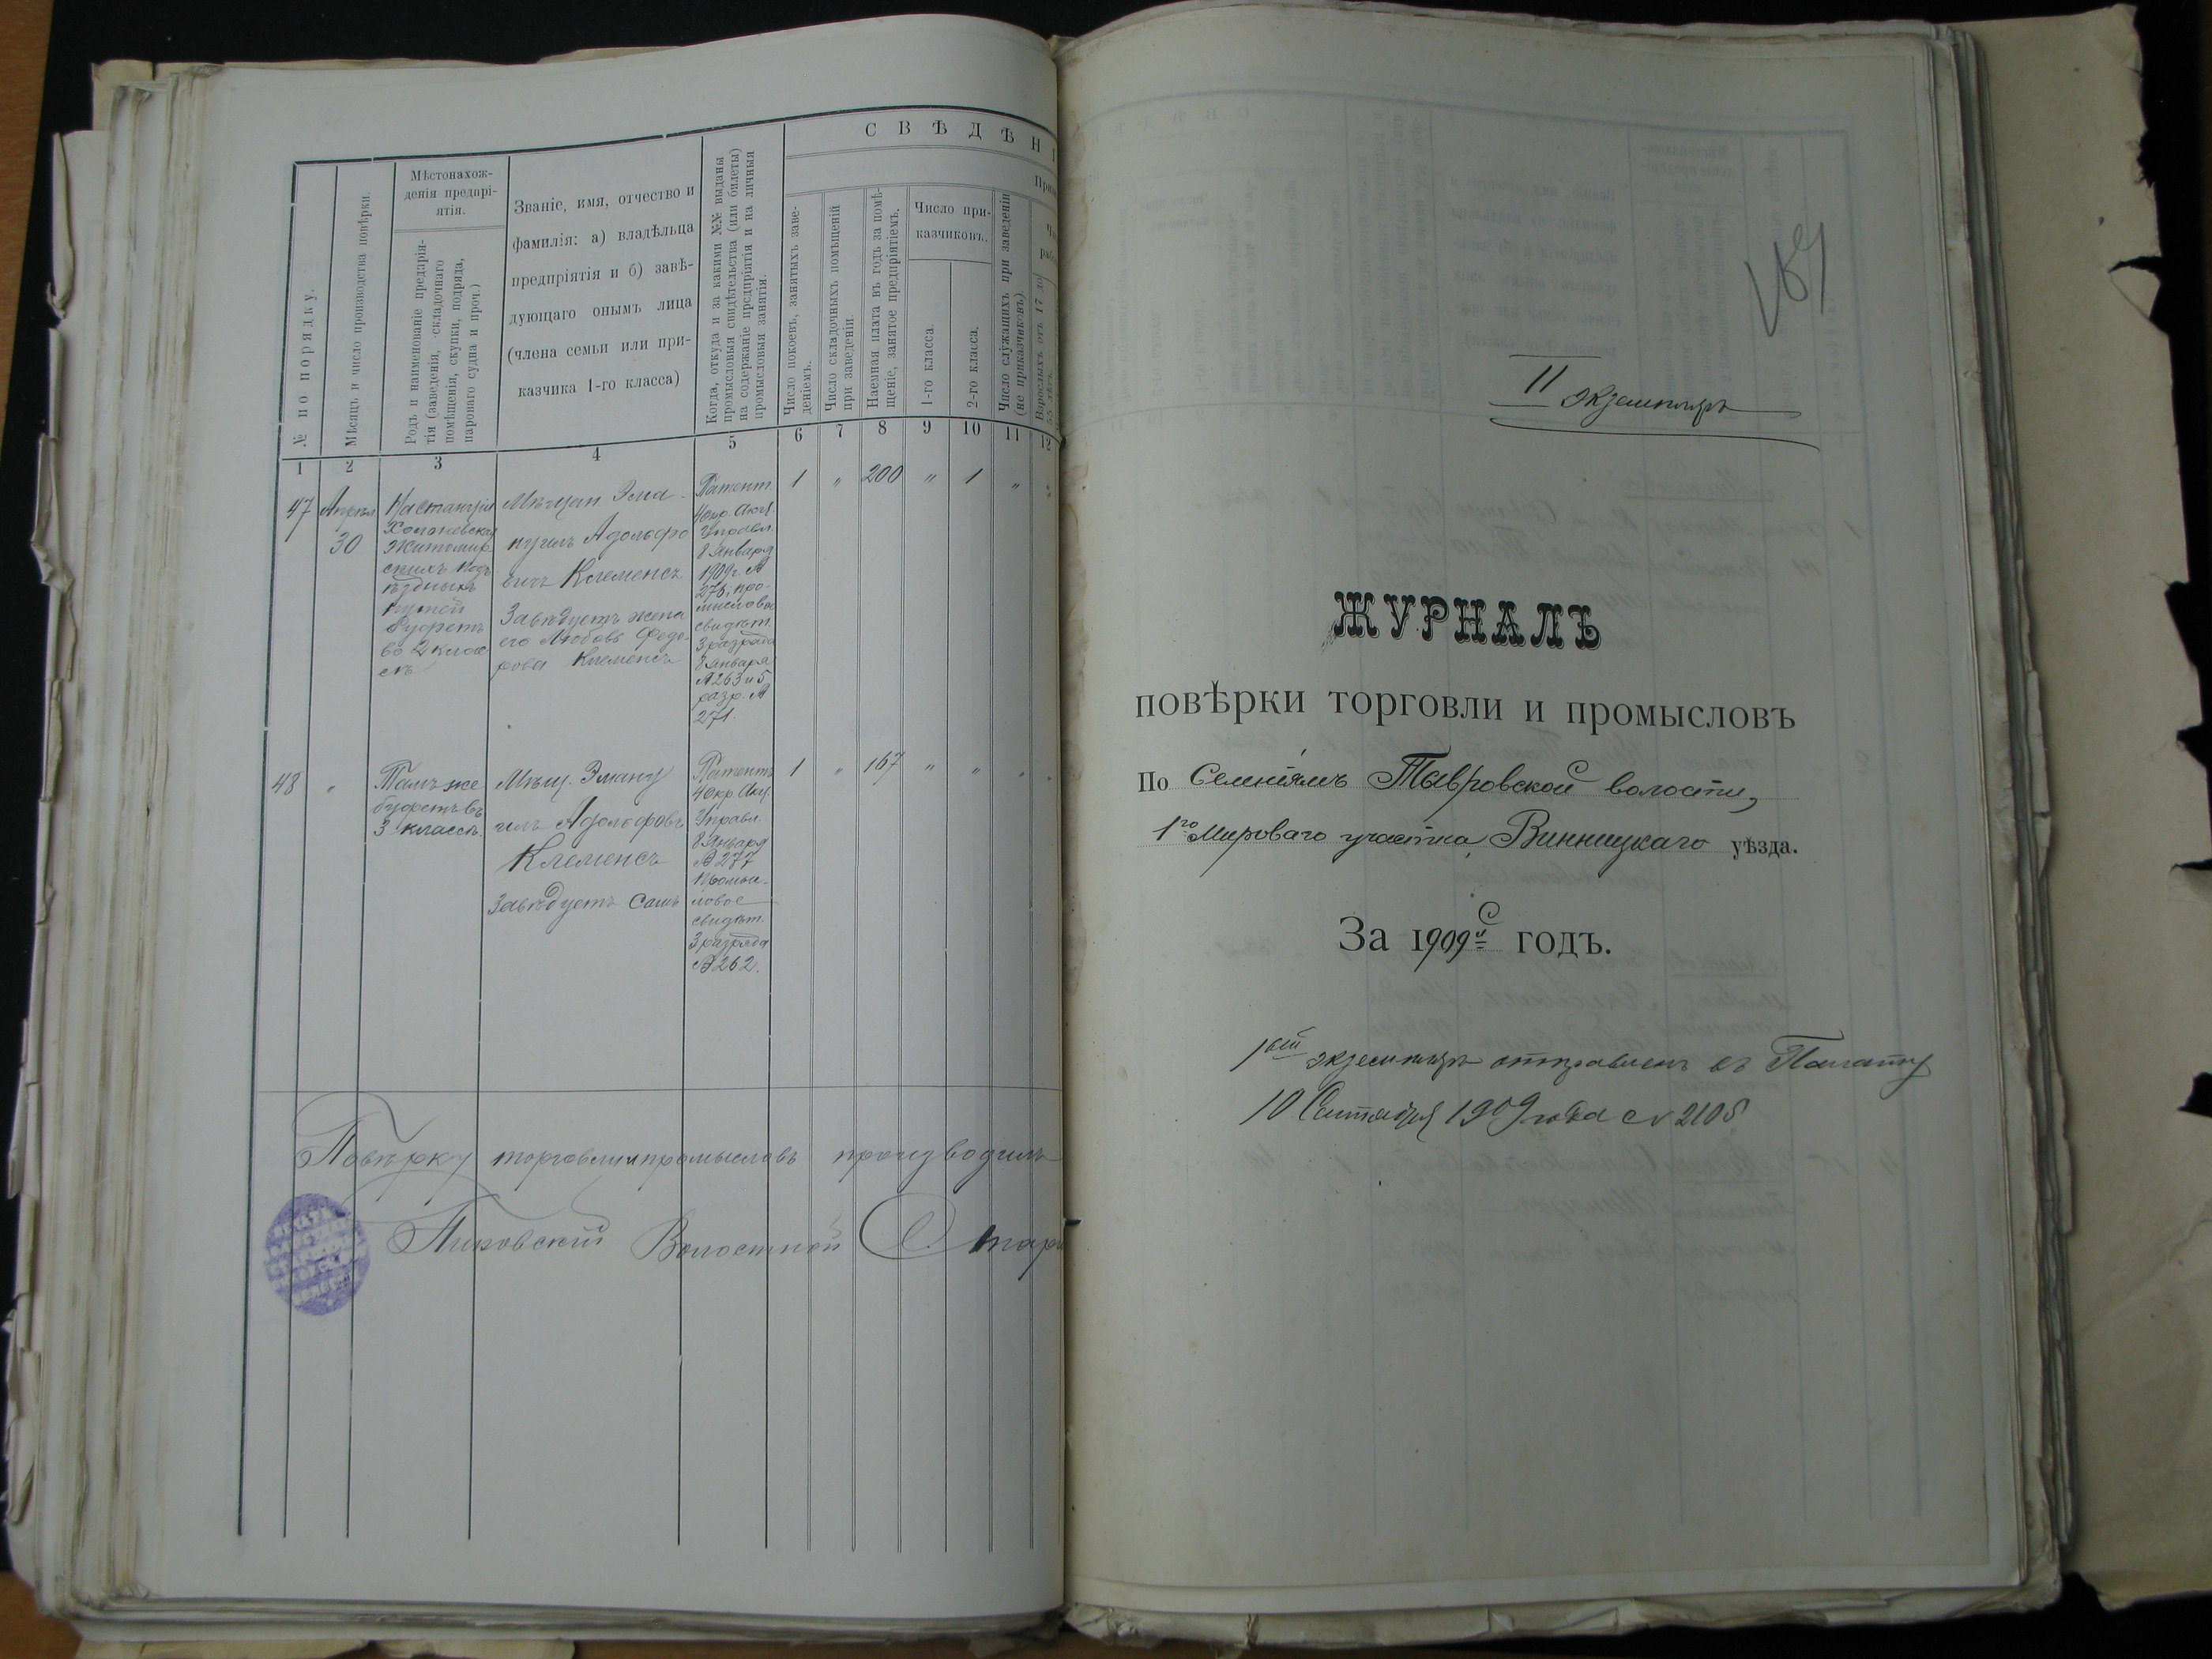 СВѢДѢНІ
№ по порядку.
Мѣсяцъ и число производства повѣрки.
Мѣстонахож-
денія предпрі-
ятія.
Родъ и наименованіе предпрія-
тія (заведенія, складочнаго
помѣщенія, скупки, подряда,
пароваго судна и проч.)
Званіе, имя, отчество и
фамилія: а) владѣльца
предпріятія и б) завѣ-
дующаго онымъ лица
(члена семьи или при-
казчика 1-го класса)
Когда, откуда и за какими №№ выданы
промысловыя свидѣтельства (или билеты)
на содержаніе предпріятія и на личныя
промысловыя занятія.
Число покоевъ, занятыхъ заве-
деніемъ.
Число складочныхъ помѣщеній
при заведеніи.
Наемная плата въ годъ за помѣ-
щеніе, занятое предпріятіемъ.
Число при-
казчиковъ.
1-го класса.
2-го класса.
Число служащихъ при заведеніи
(не приказчиковъ)
Взрослыхъ отъ 17 до
55 лѣтъ.
1 2 3 4 5 6 7 8 9 10 11 12
47
Апрѣл
30
На станціи
Холоневская
Житомир
скихъ подъ
ѣздныхъ
путей
Буфетъ
во 2 клас
сѣ
Мѣщан. Эма-
нуилъ Адольфо
вичъ Клеменсъ
Завѣдуетъ жена
его Любовь Федо-
рова Клеменсъ
Патент.
4 окр. Акц.
Управл.
8 Января
1909 г. №
276, про-
мысловое
свидѣт.
3 разряда
8 Января
№ 263 и 5
разр. №
271.
1 " 200 " 1 " "
48
"
Тамъ же
буфетъ въ
3 классѣ.
Мѣщ. Эману
илъ Адольфовъ
Клеменсъ
Завѣдуетъ самъ
Патентъ
4 окр. Акц.
Управл.
8 Января
№ 277
Промыс-
ловое
свидѣт.
3 разряда
№ 262.
1 " 167 " " " "
Повѣрку торговли и промысловъ производилъ
Пиковскій Волостной Стар
II экземпляръ
ЖУРНАЛЪ
повѣрки торговли и промысловъ
По Селеніямъ Тывровской волости,
1го Мироваго участка Винницкаго уѣзда.
За 1909й годъ.
1ый экземпляръ отправленъ въ Палату
10 Сентября 1909 года № 2105